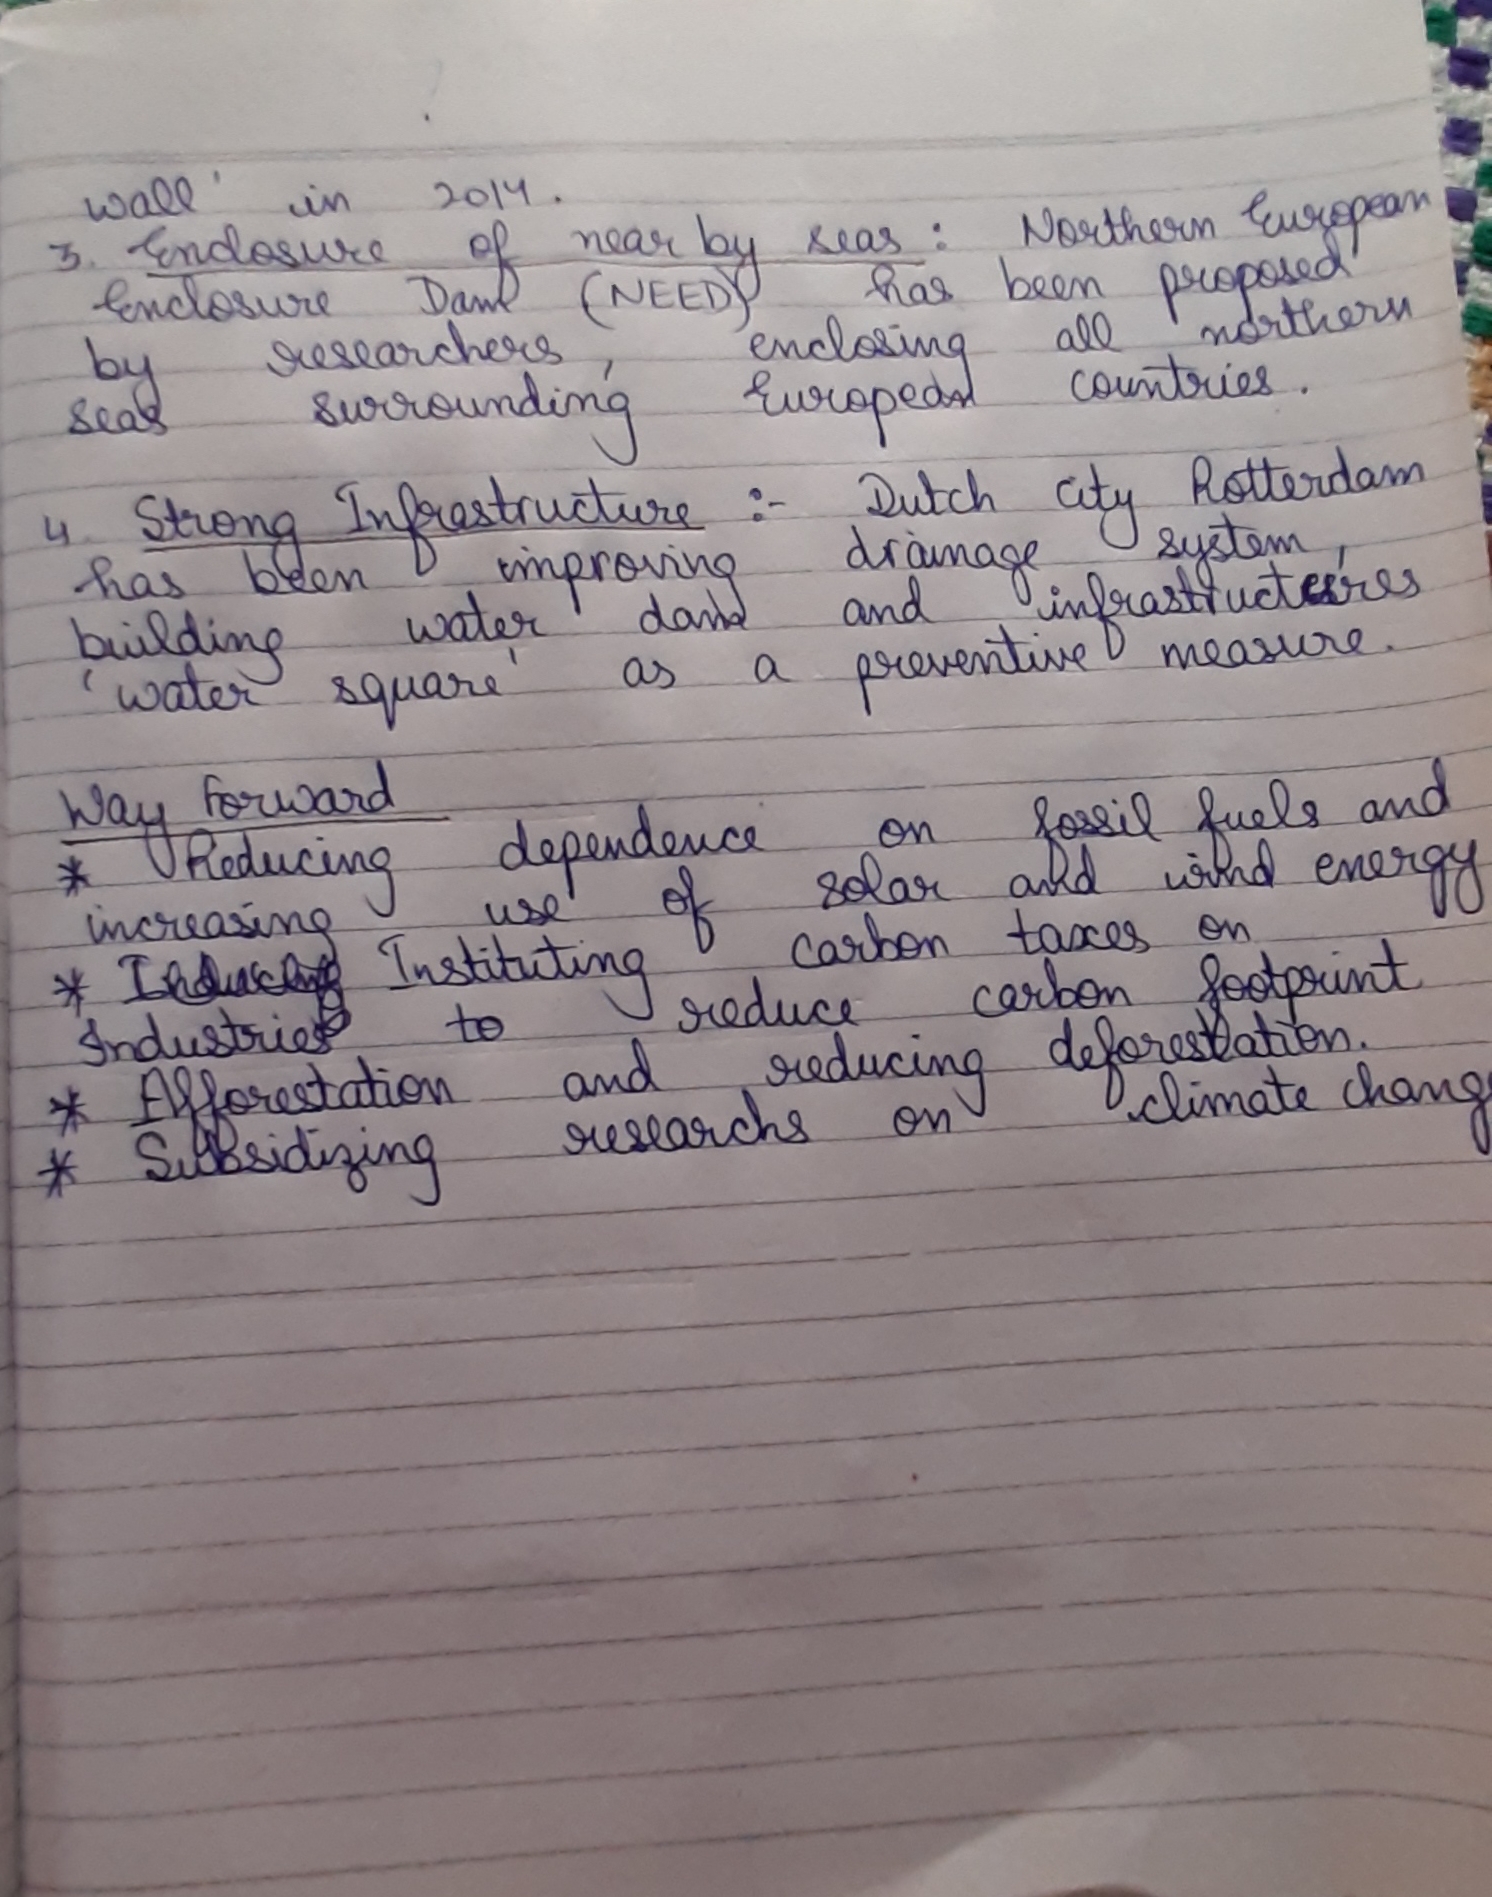 wall' in 2014.
3. Enclosure of near by seas : Northern European
Enclosure Dam (NEED) has been proposed
by researchers, enclosing all northern
seas surrounding European countries.
4. Strong Infrastructure :- Dutch city Rotterdam
has been improving drainage system,
building water dams and infrastructures
'water square' as a preventive measure.
Way forward
* Reducing dependence on fossil fuels and
increasing use of solar and wind energy
* Instituting carbon taxes on
Industries to reduce carbon footprint
* Afforestation and reducing deforestation.
* Subsidizing researchs on climate chang